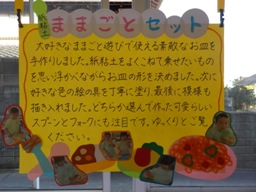 紙粘土
ままごとセット
大好きなままごと遊びで使える素敵なお皿を
手作りしました。紙粘土をよくこねて乗せたいもの
を思い浮かべながらお皿の形を決めました。次に
好きな色の絵の具を丁寧に塗り、最後に模様も
描き入れました。どちらか選んで作った可愛らしい
スプーンとフォークにも注目です。ゆっくりとご覧
ください。